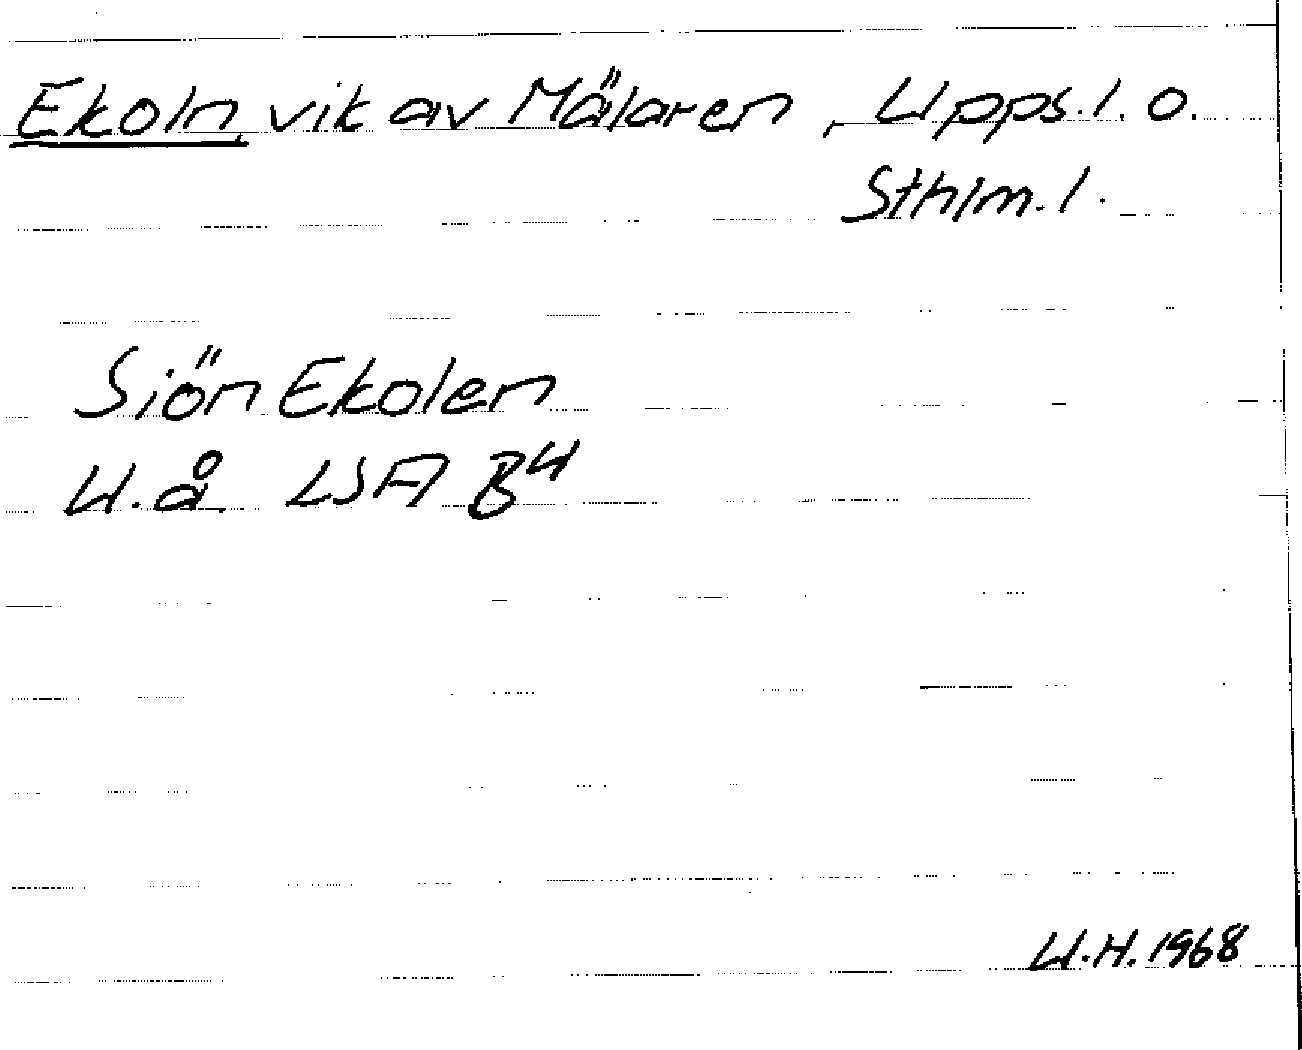 Ekoln, vik av Mälaren, Upps.l. o.
Sthlm.l.
Siön Ekolen
U.å LSA B4
U.H. 1968